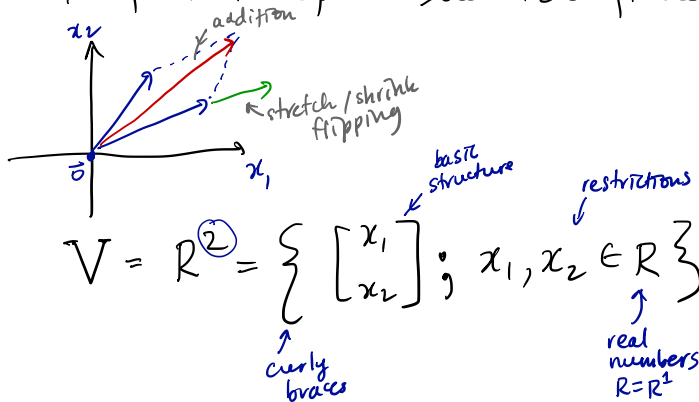 addition
x₂
stretch/shrink
flipping
0⃗
x₁
basic
structure
restrictions
V = R² = { [x₁ x₂] ; x₁, x₂ ∈ R }
curly
braces
real
numbers
R=R¹